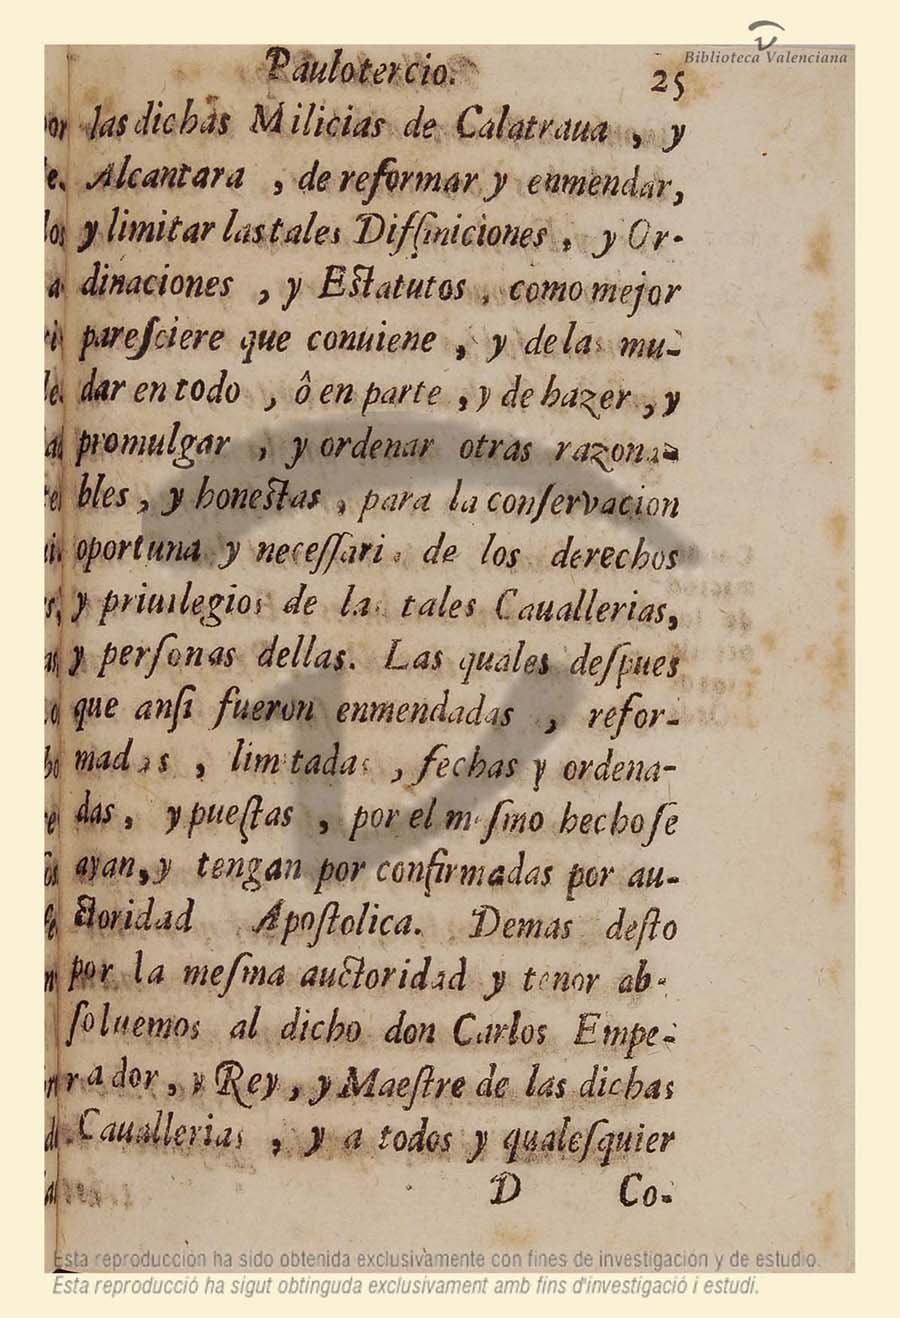 Biblioteca Valenciana
Paulo tercio. 25
las dichas Milicias de Calatraua , y
Alcantara , de reformar y enmendar,
y limitar las tales Diffiniciones , y Or-
dinaciones , y Estatutos , como mejor
paresciere que conuiene , y de las mu-
dar en todo , ô en parte , y de hazer , y
promulgar , y ordenar otras razona-
bles , y honestas , para la conservacion
oportuna y necessaria de los derechos
y priuilegios de las tales Cauallerias,
y personas dellas. Las quales despues
que ansi fueron enmendadas , refor-
madas , limitadas , fechas y ordena-
das , y puestas , por el mesmo hecho se
ayan, y tengan por confirmadas por au-
ctoridad Apostolica. Demas desto
por la mesma auctoridad y tenor ab-
soluemos al dicho don Carlos Empe-
rador , y Rey , y Maestre de las dichas
Cauallerias , y a todos y qualesquier
D Co-
Esta reproducción ha sido obtenida exclusivamente con fines de investigación y de estudio.
Esta reproducció ha sigut obtinguda exclusivament amb fins d'investigació i estudi.